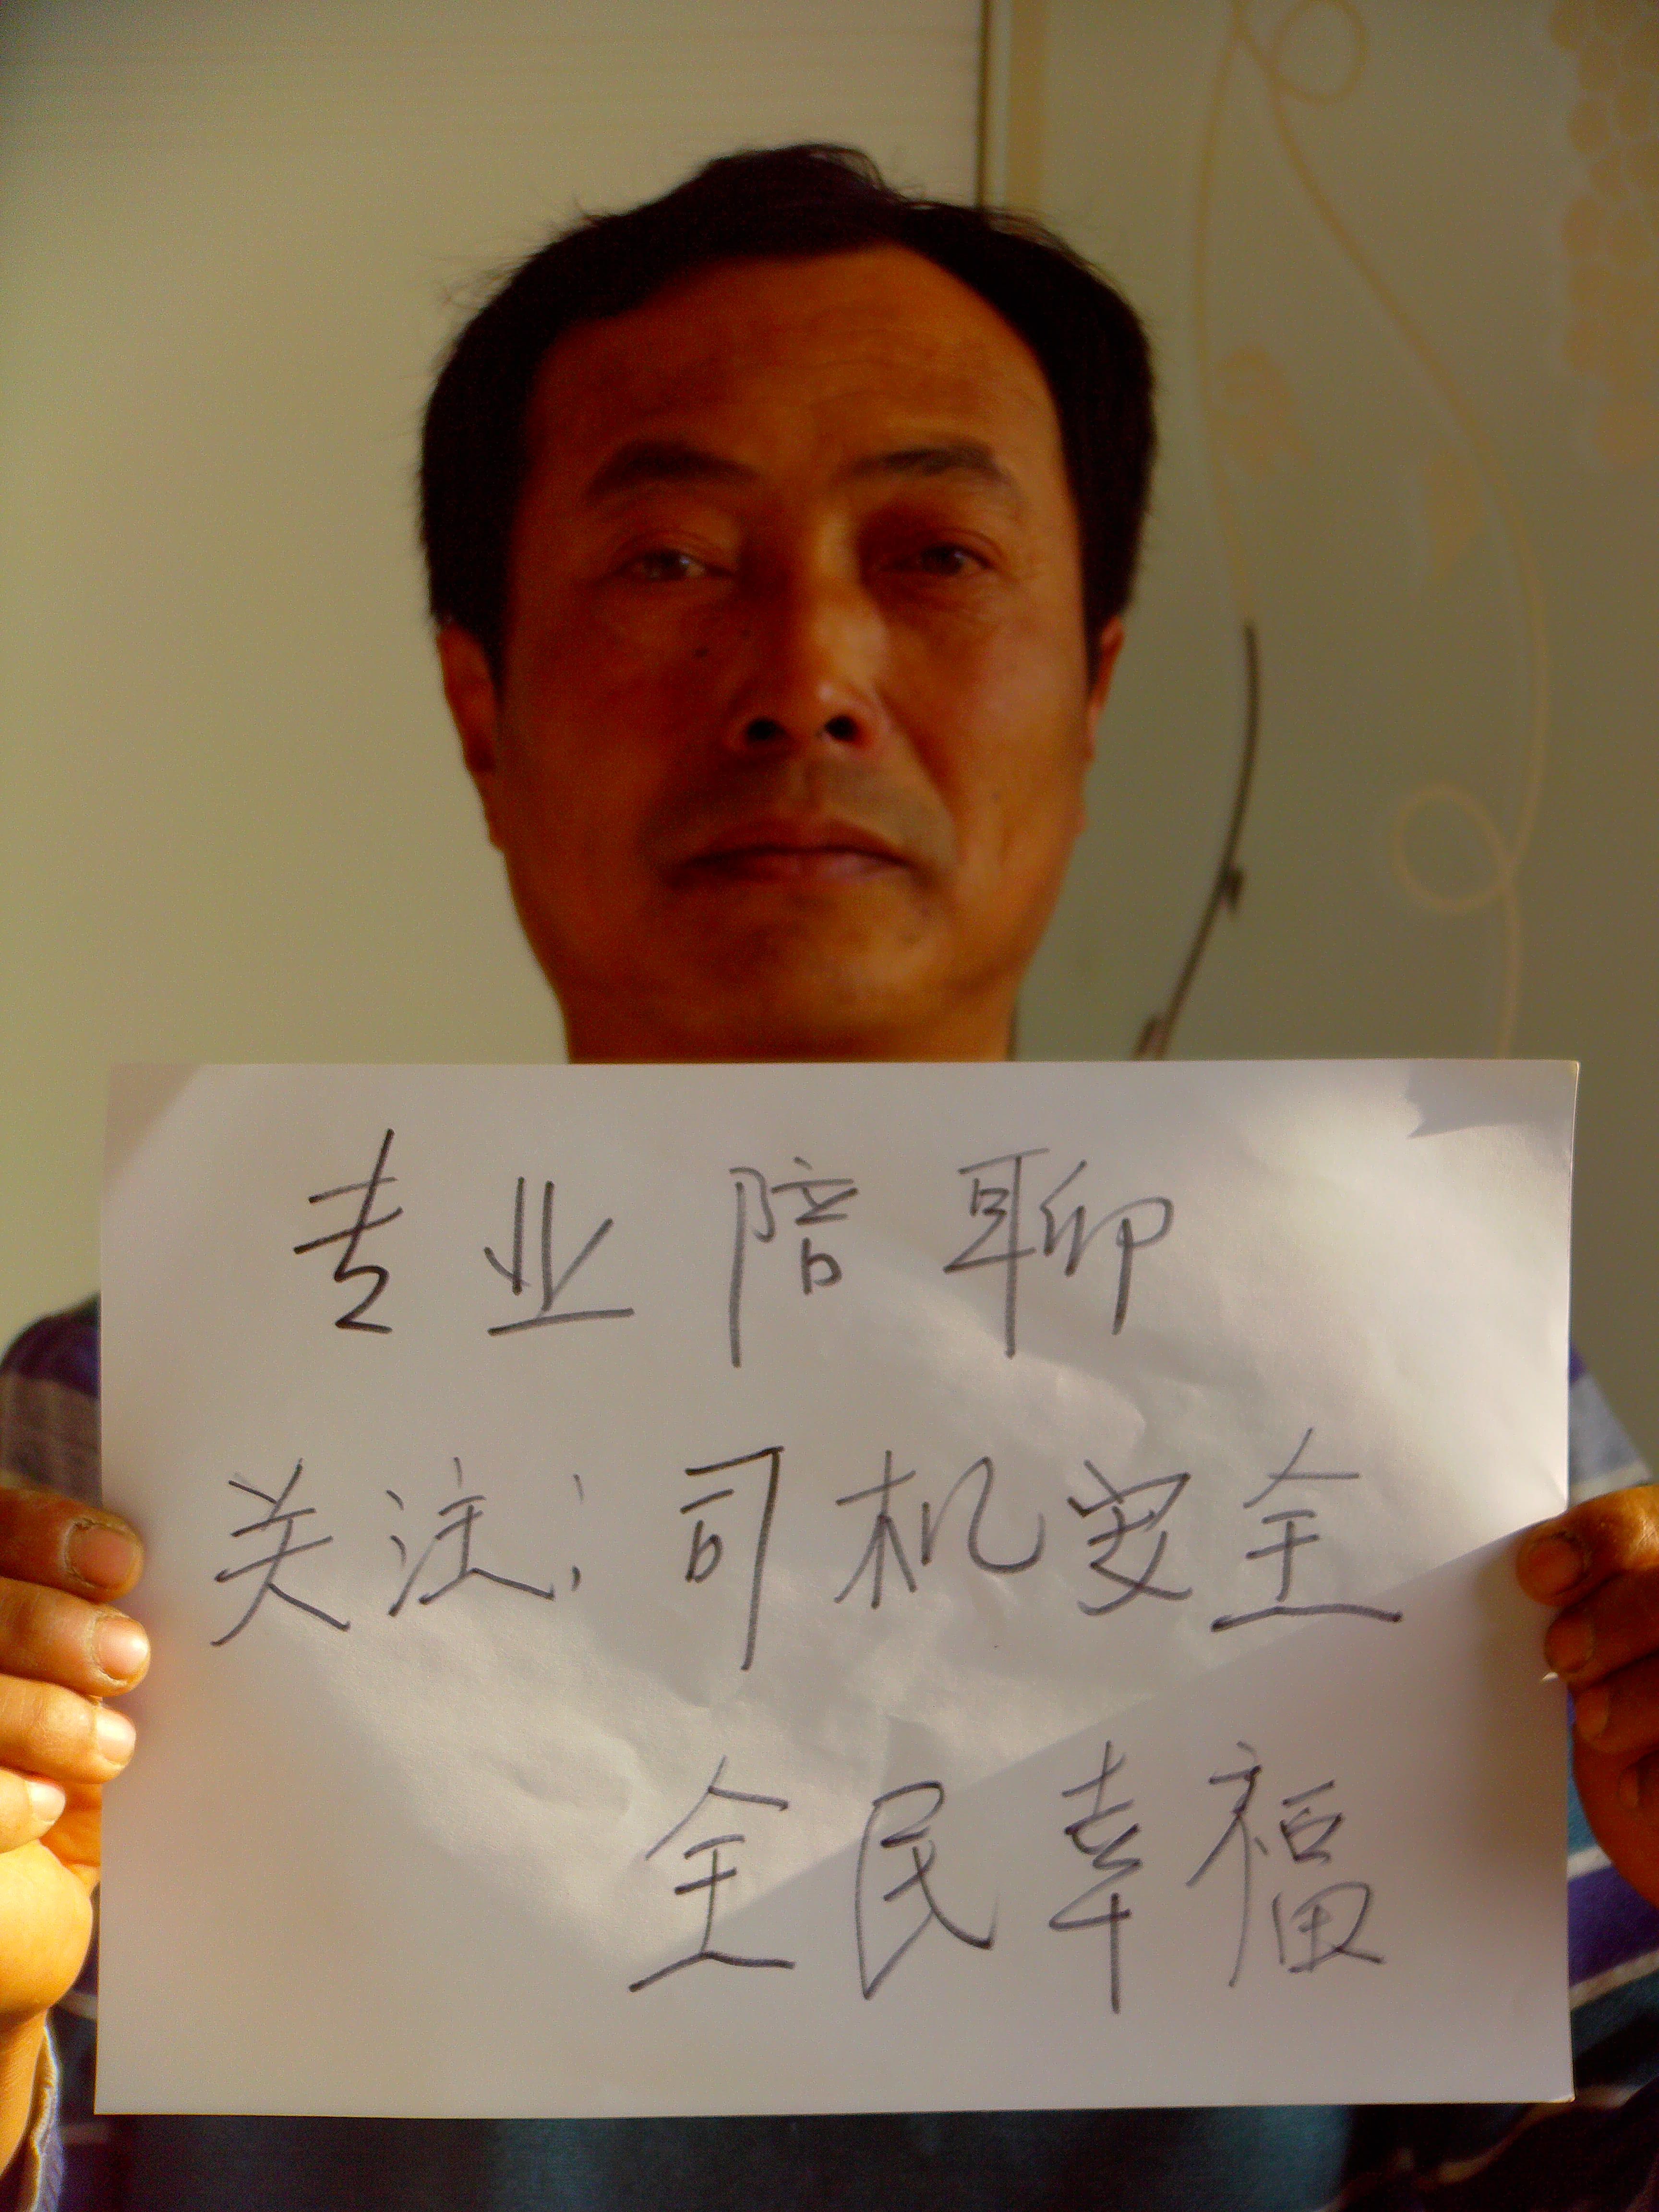 专业陪聊
关注:司机安全
全民幸福